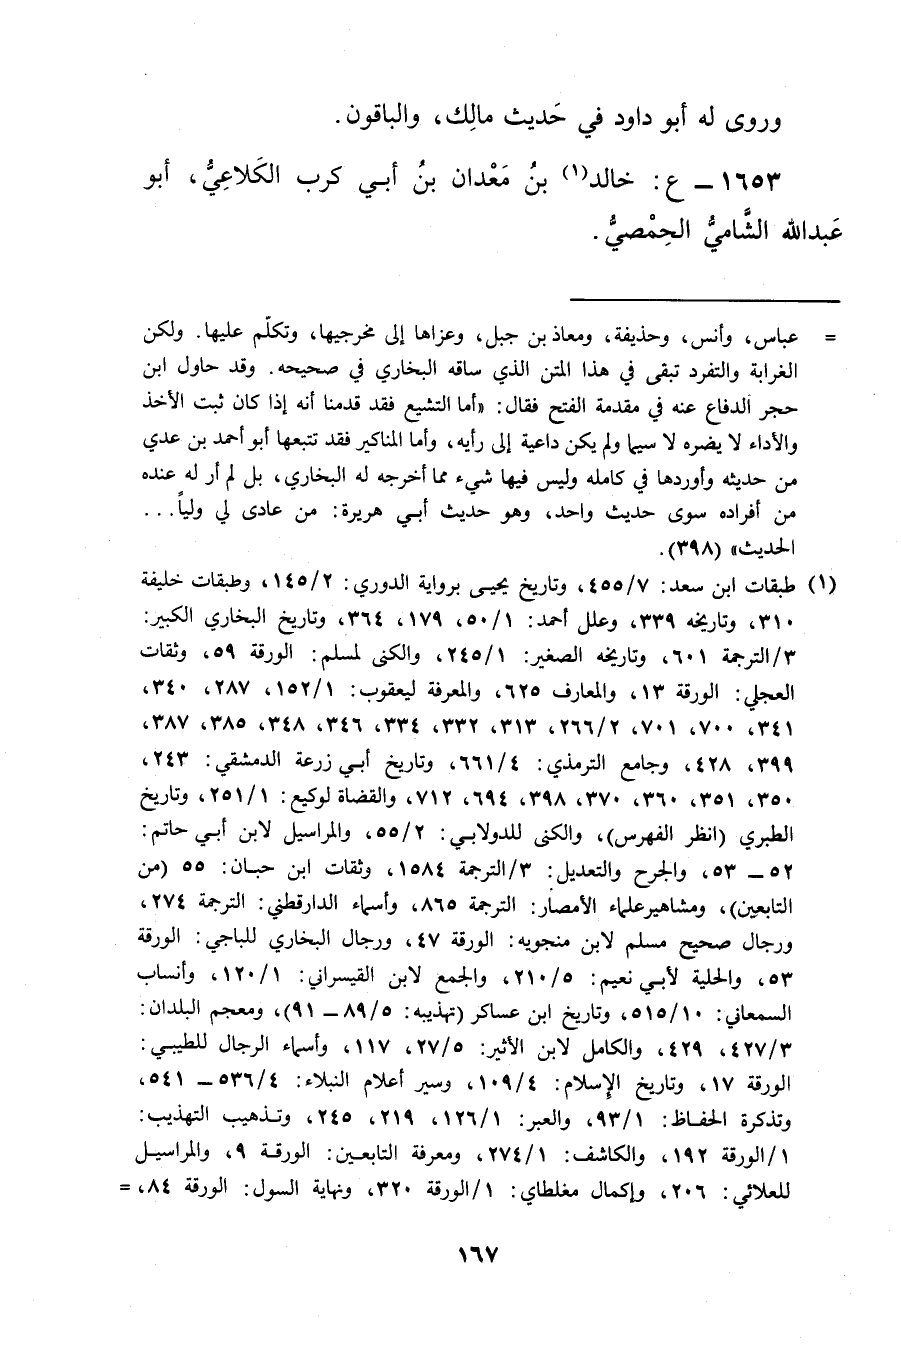 وروى له أبو داود في حَديث مالِك، والباقون.
١٦٥٣ ــ ع: خالد(١) بنُ مَعْدان بنُ أبي كرب الكَلاعِيُّ، أبو
عَبدالله الشَّاميُّ الحِمْصيُّ.
= عباس، وأنس، وحذيفة، ومعاذ بن جبل، وعزاها إلى مخرجيها، وتكلّم عليها. ولكن
الغرابة والتفرد تبقى في هذا المتن الذي ساقه البخاري في صحيحه. وقد حاول ابن
حجر الدفاع عنه في مقدمة الفتح فقال: «أما التشيع فقد قدمنا أنه إذا كان ثبت الأخذ
والأداء لا يضره لا سيما ولم يكن داعية إلى رأيه، وأما المناكير فقد تتبعها أبو أحمد بن عدي
من حديثه وأوردها في كامله وليس فيها شيء مما أخرجه له البخاري، بل لم أر له عنده
من أفراده سوى حديث واحد، وهو حديث أبي هريرة: من عادى لي ولياً...
الحديث» (٣٩٨).
(١) طبقات ابن سعد: ٤٥٥/٧، وتاريخ يحيى برواية الدوري: ١٤٥/٢، وطبقات خليفة
٣١٠، وتاريخه ٣٣٩، وعلل أحمد: ٥٠/١، ١٧٩، ٣٦٤، وتاريخ البخاري الكبير:
٣/الترجمة ٦٠١، وتاريخه الصغير: ٢٤٥/١، والكنى لمسلم: الورقة ٥٩، وثقات
العجلي: الورقة ١٣، والمعارف ٦٢٥، والمعرفة ليعقوب: ١٥٢/١، ٢٨٧، ٣٤٠،
٣٤١، ٧٠٠، ٧٠١، ٢٦٦/٢، ٣١٣، ٣٣٢، ٣٣٤، ٣٤٦، ٣٤٨، ٣٨٥، ٣٨٧،
٣٩٩، ٤٢٨، وجامع الترمذي: ٦٦١/٤، وتاريخ أبي زرعة الدمشقي: ٢٤٣،
٣٥٠، ٣٥١، ٣٦٠، ٣٧٠، ٣٩٨، ٦٩٤، ٧١٢، والقضاة لوكيع: ٢٥١/١، وتاريخ
الطبري (انظر الفهرس)، والكنى للدولابي: ٥٥/٢، والمراسيل لابن أبي حاتم:
٥٢ ــ ٥٣، والجرح والتعديل: ٣/الترجمة ١٥٨٤، وثقات ابن حبان: ٥٥ (من
التابعين)، ومشاهير علماء الأمصار: الترجمة ٨٦٥، وأسماء الدارقطني: الترجمة ٢٧٤،
ورجال صحيح مسلم لابن منجويه: الورقة ٤٧، ورجال البخاري للباجي: الورقة
٥٣، والحلية لأبي نعيم: ٢١٠/٥، والجمع لابن القيسراني: ١٢٠/١، وأنساب
السمعاني: ٥١٥/١٠، وتاريخ ابن عساكر (تهذيبه: ٨٩/٥ ــ ٩١)، ومعجم البلدان:
٤٢٧/٣، ٤٢٩، والكامل لابن الأثير: ٢٧/٥، ١١٧، وأسماء الرجال للطيبي:
الورقة ١٧، وتاريخ الإسلام: ١٠٩/٤، وسير أعلام النبلاء: ٥٣٦/٤ ــ ٥٤١،
وتذكرة الحفاظ: ٩٣/١، والعبر: ١٢٦/١، ٢١٩، ٢٤٥، وتذهيب التهذيب:
١/الورقة ١٩٢، والكاشف: ٢٧٤/١، ومعرفة التابعين: الورقة ٩، والمراسيل
للعلائي: ٢٠٦، وإكمال مغلطاي: ١/الورقة ٣٢٠، ونهاية السول: الورقة ٨٤، =
١٦٧